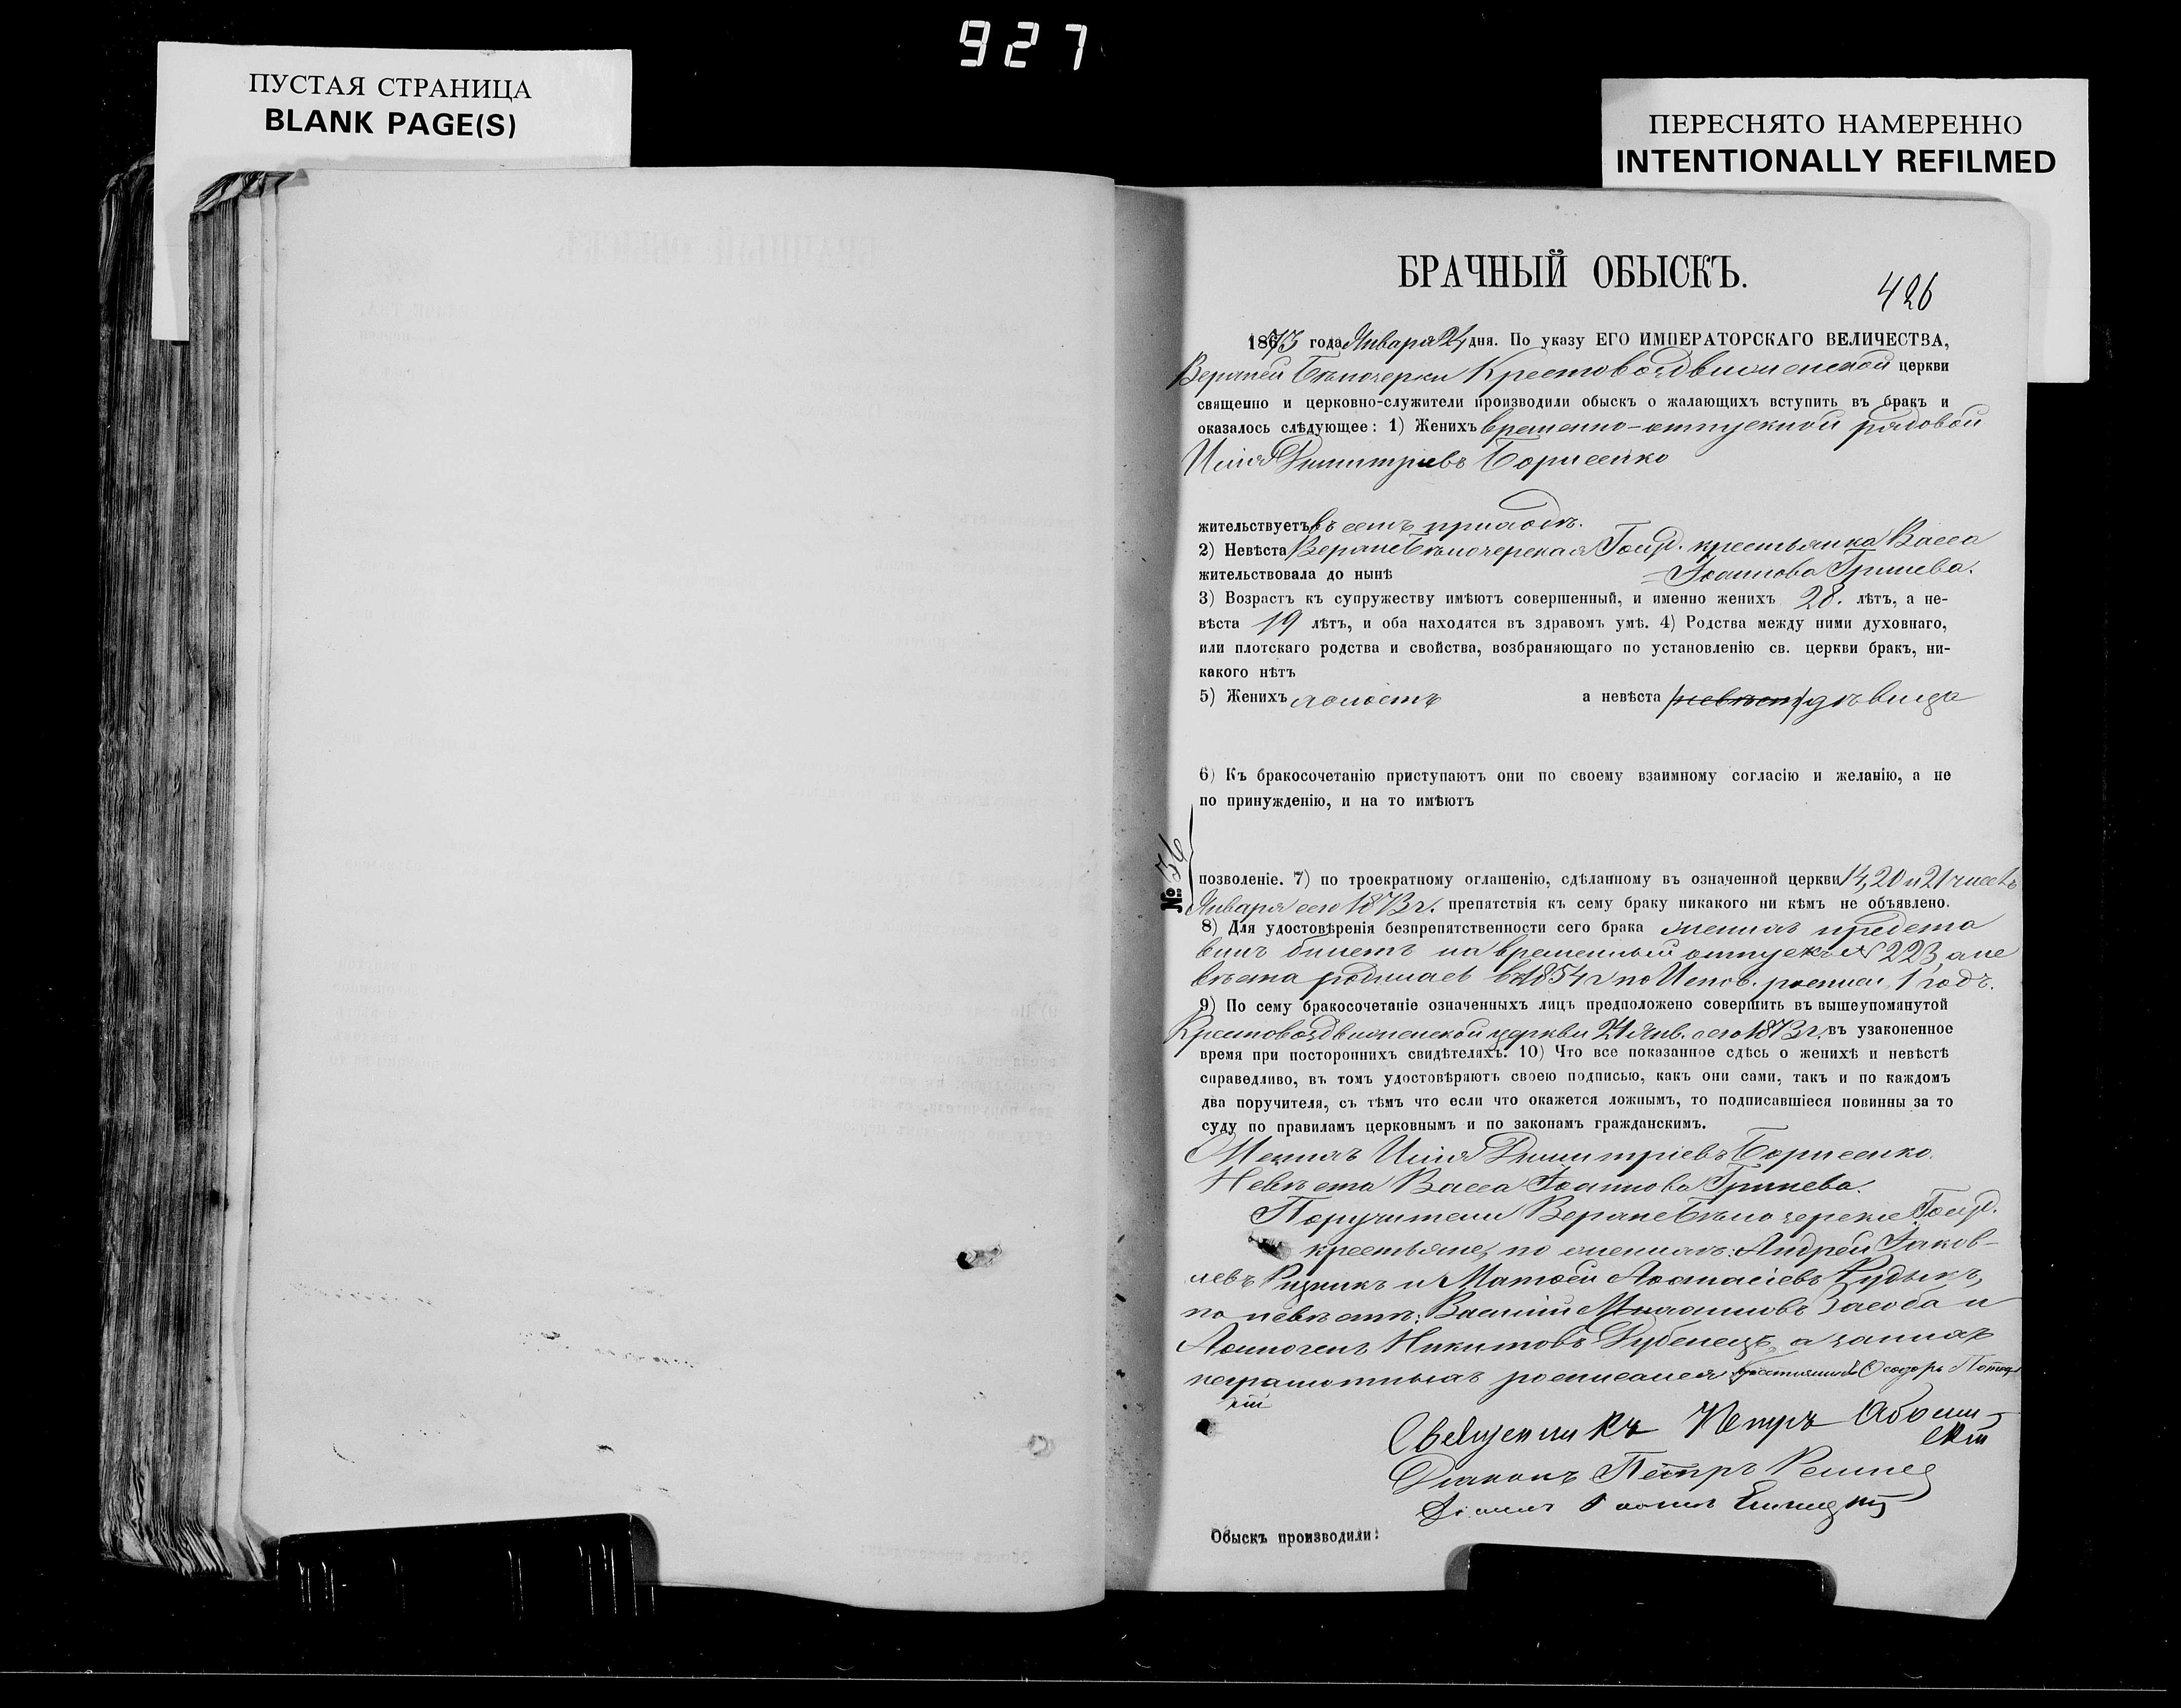 927
ПУСТАЯ СТРАНИЦА
BLANK PAGE(S)
ПЕРЕСНЯТО НАМЕРЕННО
INTENTIONALLY REFILMED
БРАЧНЫЙ ОБЫСКЪ.
426
1873 года Января 24 дня. По указу ЕГО ИМПЕРАТОРСКАГО ВЕЛИЧЕСТВА,
Крестовоздвиженской церкви
священно и церковно-служители производили обыскъ о жалающихъ вступить въ бракъ и
оказалось слѣдующее: 1) Женихъ временно-отпускной рядовой
Илія Димитріевъ Борисенко
жительствуетъ въ семъ приходѣ.
2) Невѣста Верхнебѣлочерская Госуд. крестьянка Васса
жительствовала до нынѣ Іоаннова Гринева.
3) Возрастъ къ супружеству имѣютъ совершенный, и именно женихъ 28. лѣтъ, а не-
вѣста 19 лѣтъ, и оба находятся въ здравомъ умѣ. 4) Родства между ними духовнаго,
или плотскаго родства и свойства, возбраняющаго по установленію св. церкви бракъ, ни-
какого нѣтъ
5) Женихъ холостъ а невѣста (невѣст) дѣвица
6) Къ бракосочетанію приступаютъ они по своему взаимному согласію и желанію, а не
по принужденію, и на то имѣютъ
№ 36
позволеніе. 7) по троекратному оглашенію, сдѣланному въ означенной церкви 14, 20 и 21 чиселъ
Января сего 1873 г. препятствія къ сему браку никакого ни кѣмъ не объявлено.
8) Для удостовѣренія безпрепятственности сего брака женихъ предста
вилъ билетъ на временный отпускъ № 223, а не
вѣста родилась въ 1854 г по Испов. росписи 1 годъ.
9) По сему бракосочетаніе означенныхъ лицъ предположено совершить въ вышеупомянутой
Крестовоздвиженской церкви 24 Янв. сего 1873 г. въ узаконенное
время при постороннихъ свидѣтеляхъ. 10) Что все показанное сдѣсь о женихѣ и невѣстѣ
справедливо, въ томъ удостовѣряютъ своею подписью, какъ они сами, такъ и по каждомъ
два поручителя, съ тѣмъ что если что окажется ложнымъ, то подписавшіеся повинны за то
суду по правиламъ церковнымъ и по законамъ гражданскимъ.
Женихъ Илія Димитріевъ Борисенко.
Невѣста Васса Іоаннова Гринева.
Поручители Верхнебѣлозерскіе Госуд.
крестьяне, по женихѣ: Андрей Іаков-
левъ Ризникъ и Матѳей Аѳанасіевъ Рудыкъ,
по невѣстѣ: Василій Засоба и
Никитовъ Дубенецъ, а за нихъ
неграмотныхъ росписался
Священникъ Петръ
Діаконъ Петръ
Обыскъ производили: